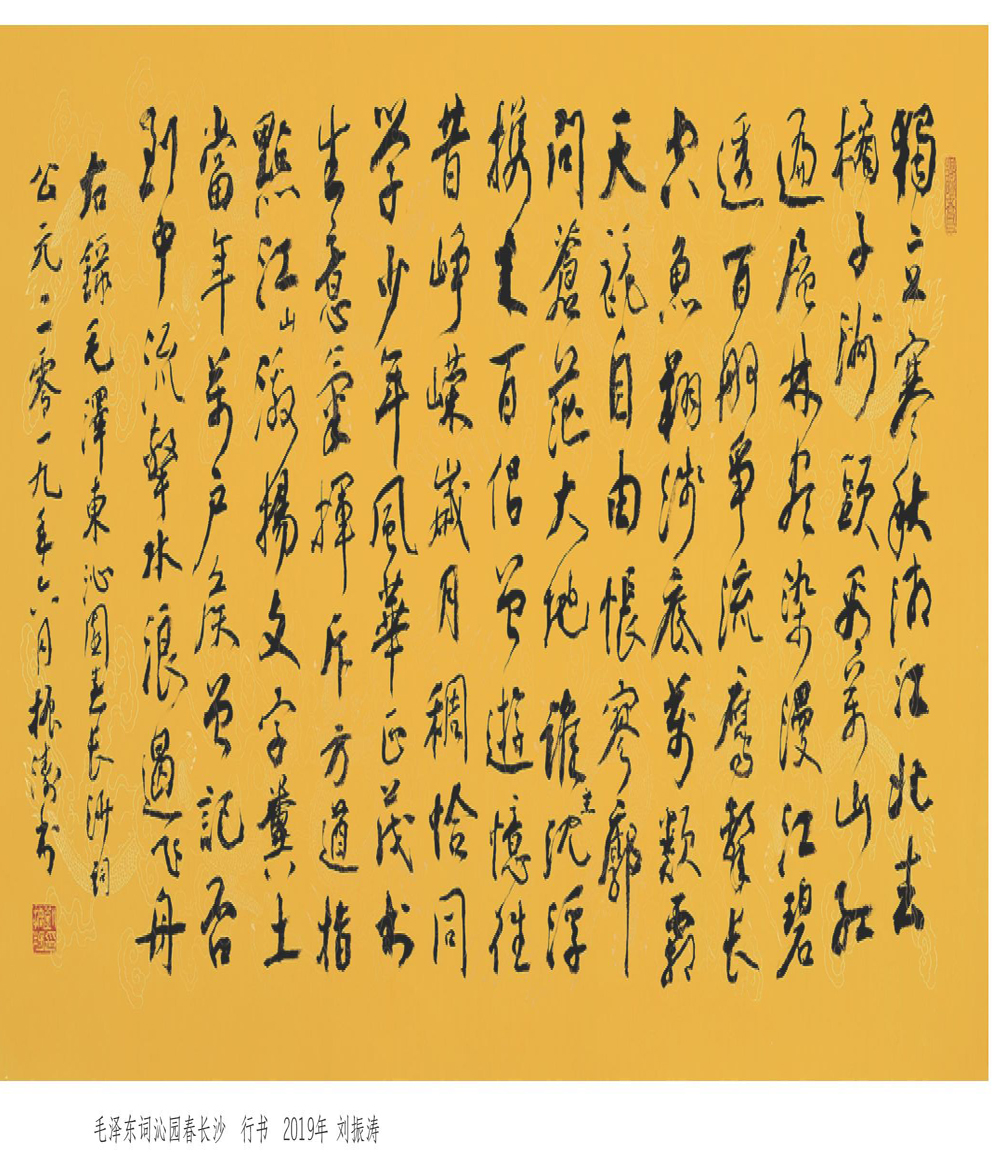 獨立寒秋湘江北去
橘子洲頭看萬山紅
遍層林盡染漫江碧
透百舸爭流鷹擊長
空魚翔淺底萬類霜
天競自由悵寥廓
問蒼茫大地誰主沈浮
攜來百侶曾遊憶往
昔崢嶸歲月稠恰同
學少年風華正茂書
生意氣揮斥方遒指
點江山激揚文字糞土
當年萬戶侯曾記否
到中流擊水浪遏飛舟
右錄毛澤東沁園春長沙詞
公元二零一九年六月振濤書
毛泽东词沁园春长沙 行书 2019年 刘振涛